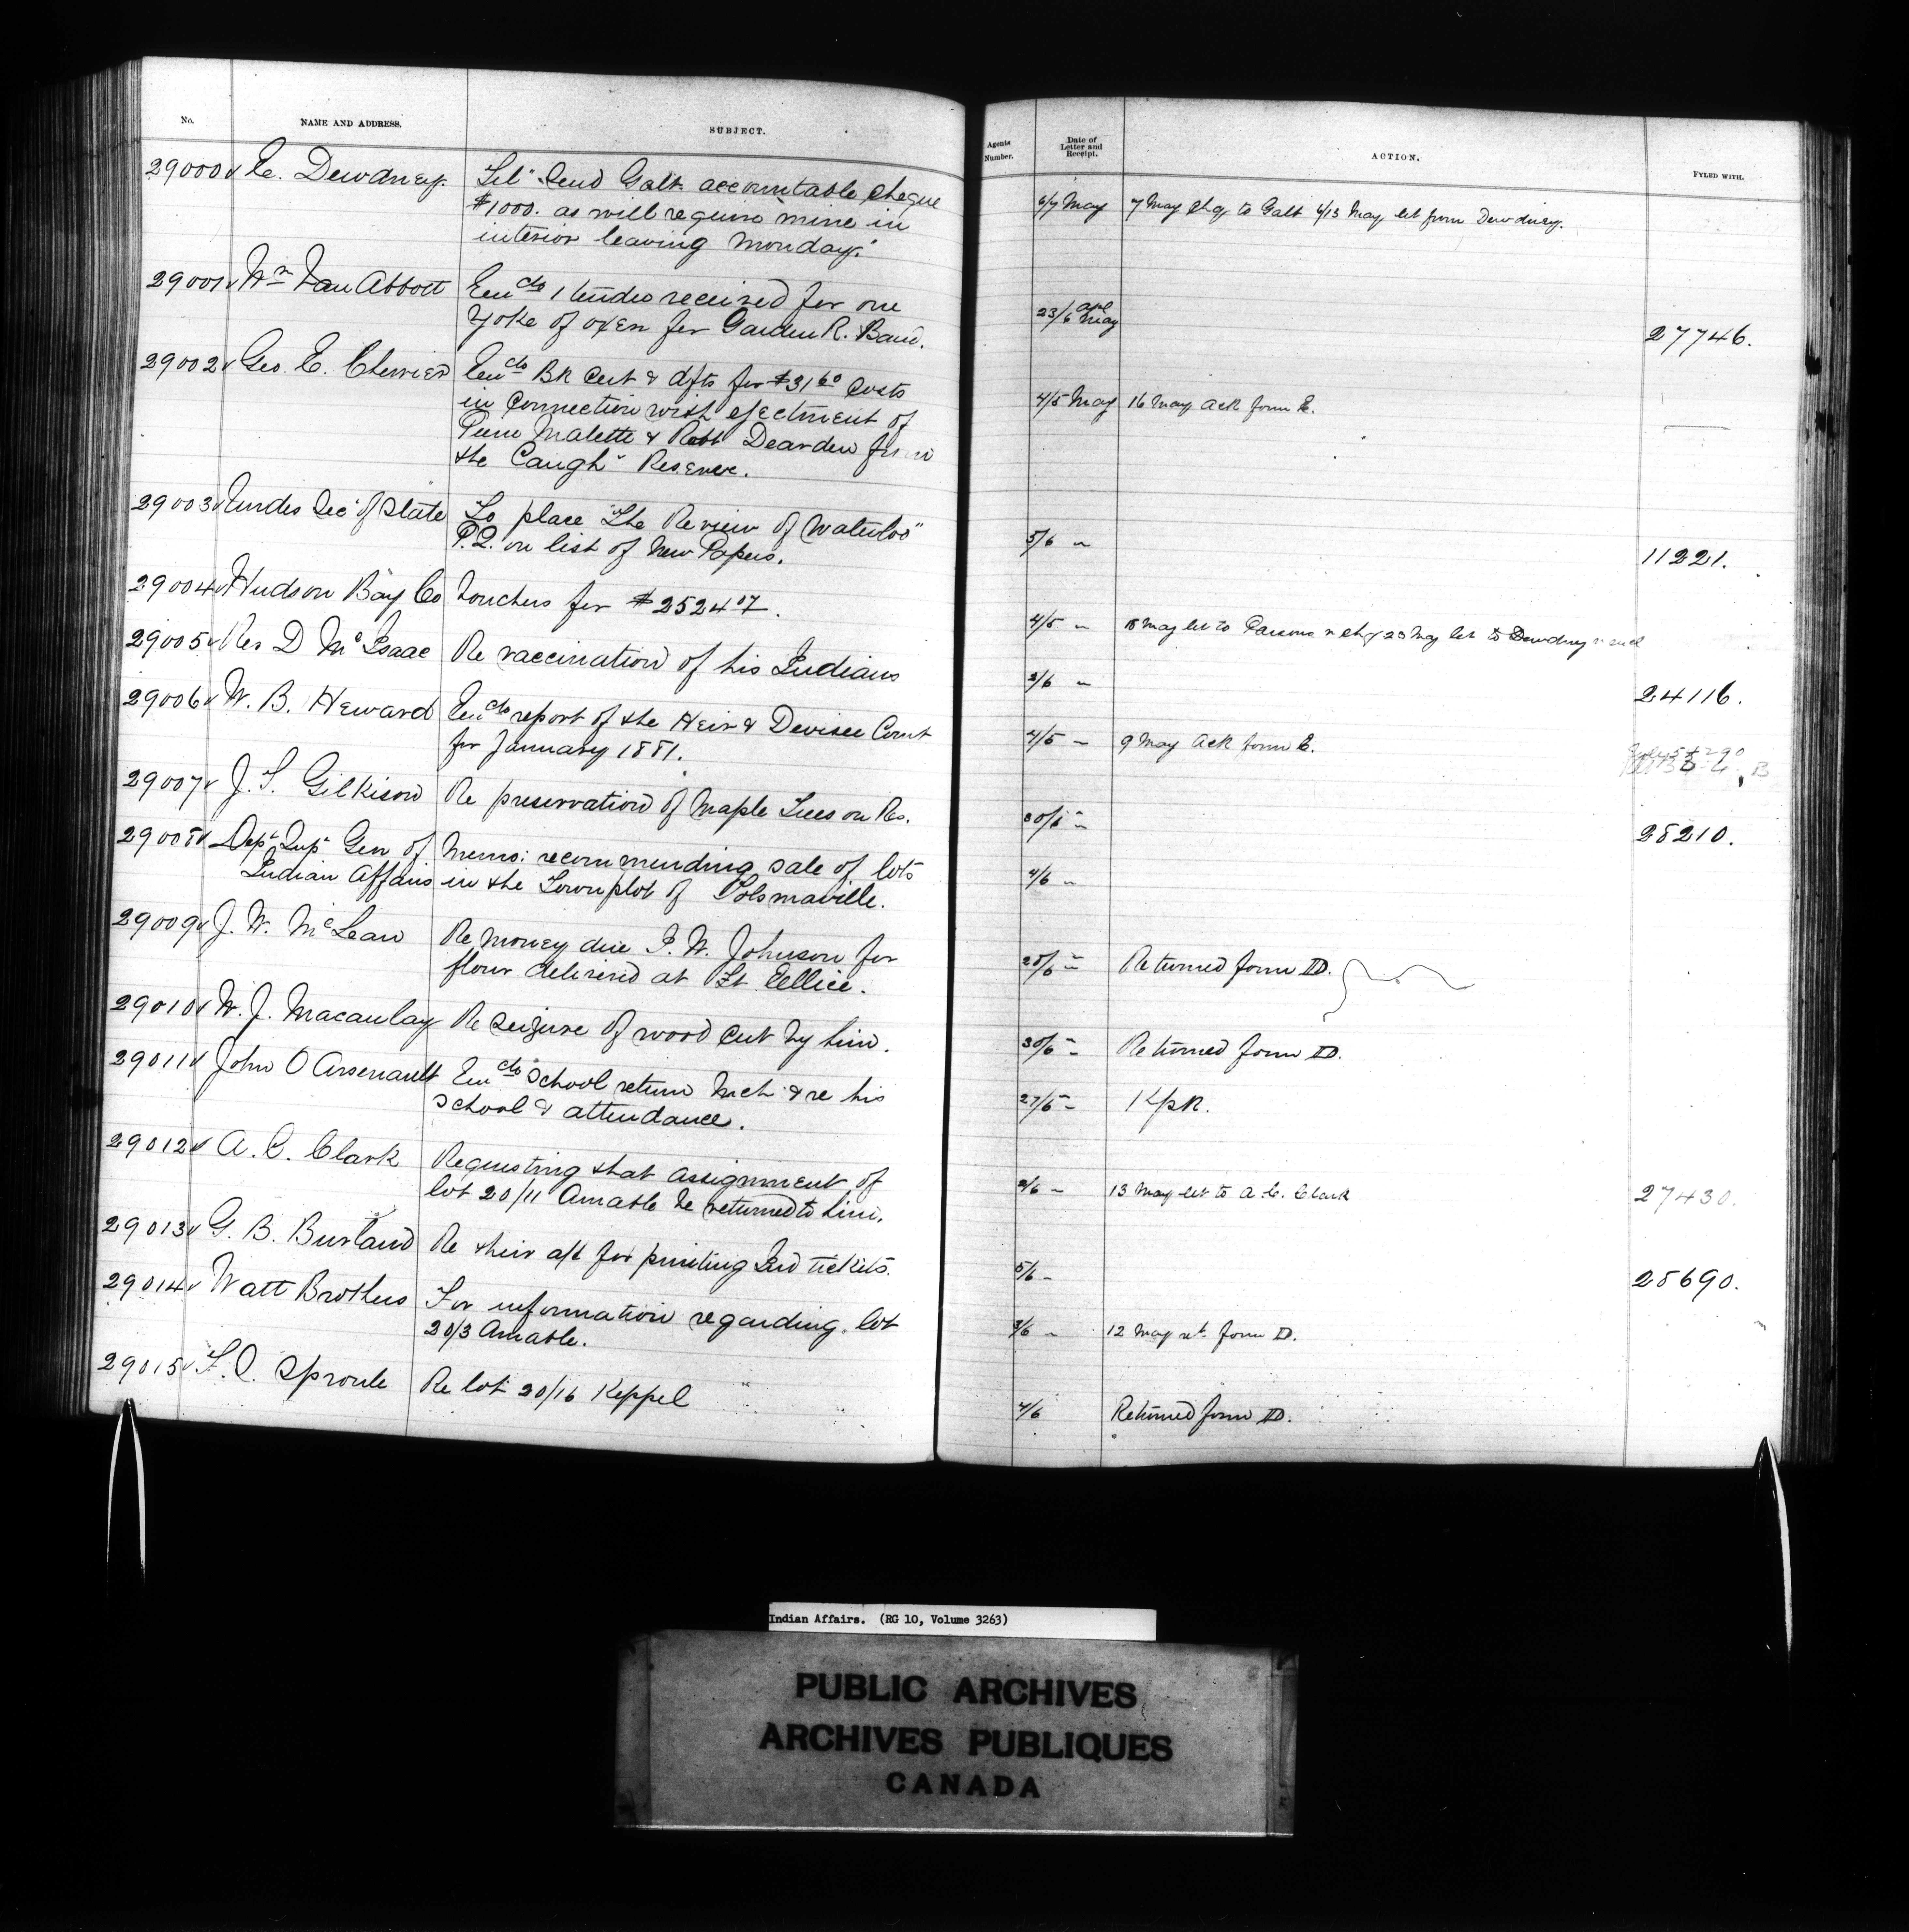 No. NAME AND ADDRESS. SUBJECT. Agents Number. Date of Letter and Receipt. ACTION. FYLED WITH.
29000 E. Dewdney. Tel "Send Galt accountable cheque 6/7 May 7 May chq to Galt 4/13 May let from Dewdney.
$1000. as will require mine in
interior leaving Monday."
29001 Wm Van Abbott Encdo 1 tender received for one 23/6 apl May 27746.
yoke of oxen for Garden R. Band.
29002 Geo. E. Cherrier Encdo Bk Cert & dfts for $31 60 Costs 4/5 May 16 May Ack form E.
in connection with ejectment of
Pierre Malette & Robt Dearden from
the Caugh Reserve.
29003 Under Sec of State To place "The Review of Waterloo" 5/6 " 11221.
P.Q. on list of New Papers.
29004 Hudson Bay Co Vouchers for $2524 07. 4/5 " 18 May let to Parsons chq 23 May let to Dewdney
29005 Rev D McIsaac Re vaccination of his Indians 3/6 " 24116.
29006 W. B. Heward Encdo report of the Heir & Devisee Court 4/5 " 9 May Ack form E.
for January 1881.
29007 J. T. Gilkison Re preservation of Maple Trees on Res. 30/6 " 28210.
29008 Dept Supt Gen of Memo: recommending sale of lots 4/6 "
Indian Affairs in the Town plot of Tolsmaville.
29009 J. W. McLean Re money due P. W. Johnson for 28/6 " Returned form D.
flour delivered at Ft Ellice.
29010 W. J. Macaulay Re Seizure of wood cut by him. 30/6 " Returned form D.
29011 John O Arsenault Encdo School return Mch & re his 27/5 "
School & attendance.
29012 A. C. Clark Requesting that assignment of 2/6 " 13 May let to A. C. Clark 27430.
lot 20/11 Amable be returned to him.
29013 G. B. Burland Re their a/c for printing Ind tickets. 5/6 " 28690.
29014 Watt Brothers For information regarding lot 3/6 " 12 May ret form D.
20/3 Amable.
29015 Sproule Re lot 20/16 Keppel 4/6 Returned form D.
Indian Affairs. (RG 10, Volume 3263)
PUBLIC ARCHIVES
ARCHIVES PUBLIQUES
CANADA